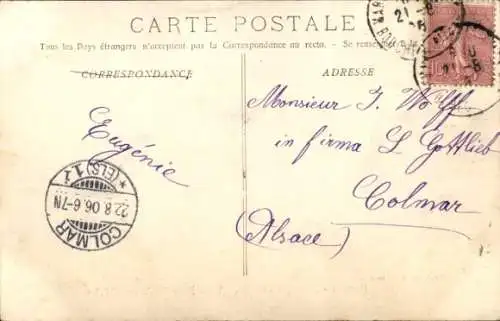 CARTE POSTALE
Tous les Pays étrangers n'acceptent pas la Correspondance au recto. - Se renseigner à la
CORRESPONDANCE
ADRESSE
Eugénie
Monsieur J. Wolff
in firma L. Gottlieb
Colmar
(Alsace)
COLMAR
22.8.06.6-7N
*(ELS.)1.z
21 -8
21 -8